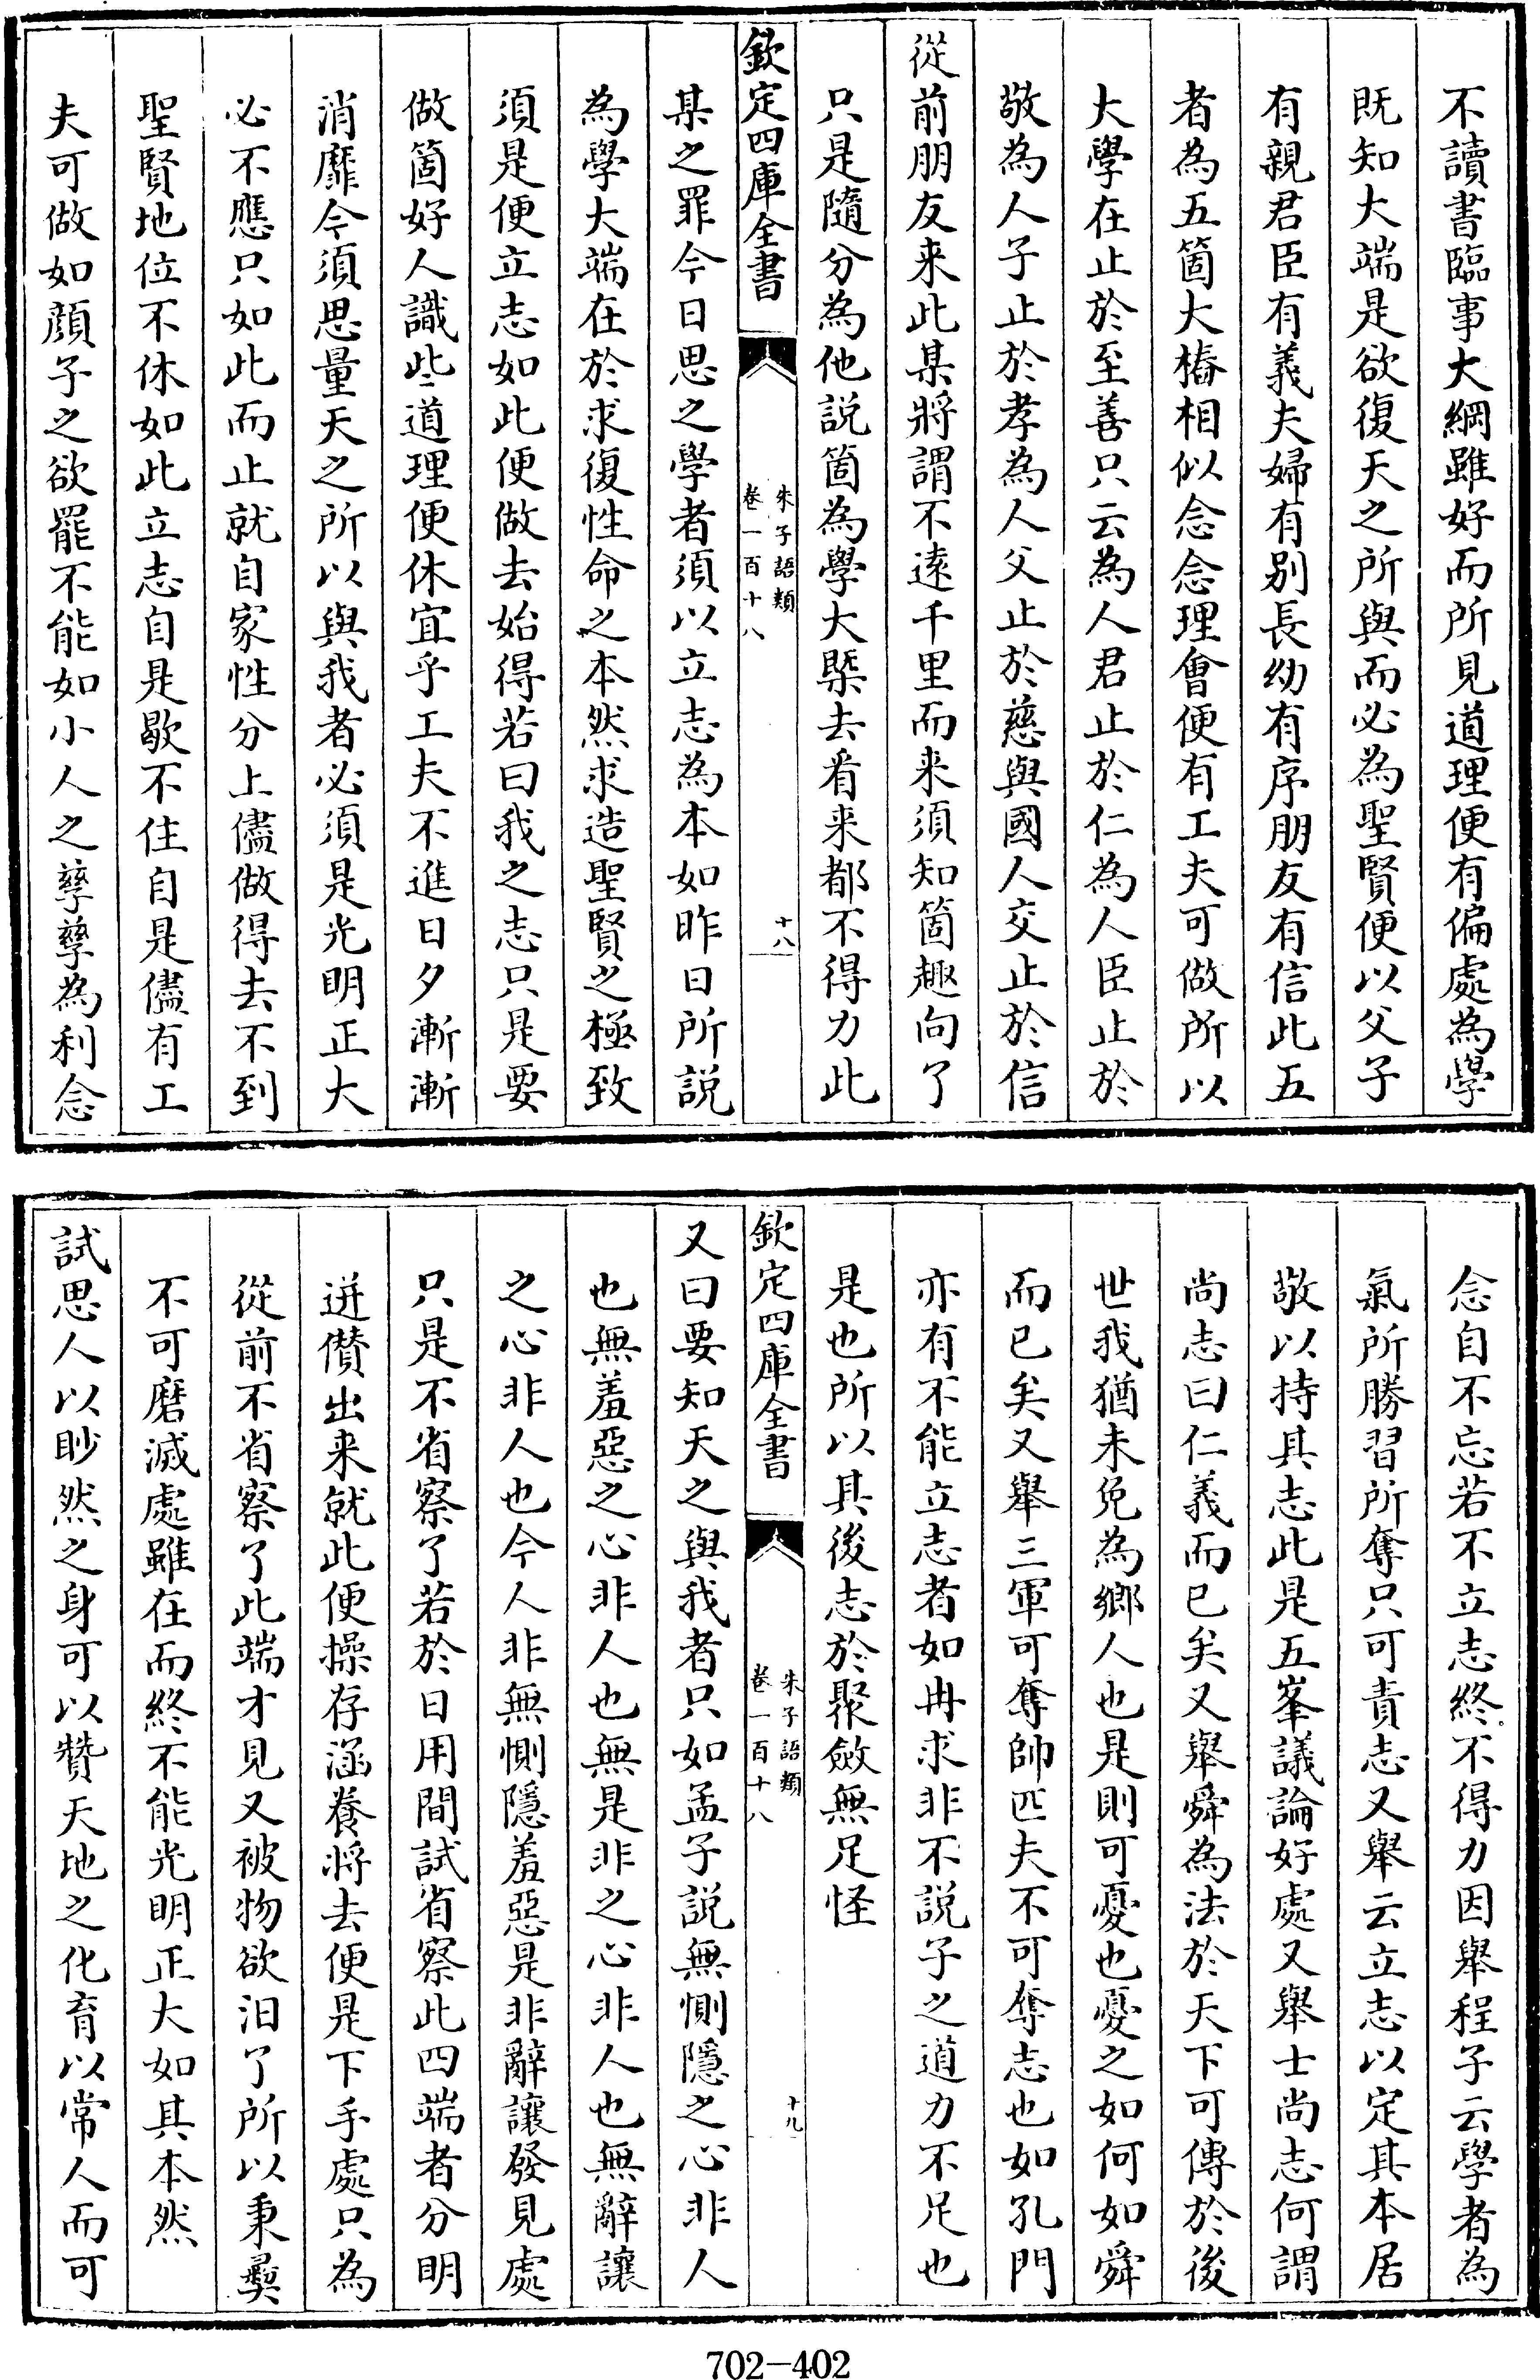 不讀書臨事大綱雖好而所見道理便有偏處為學
既知大端是欲復天之所與而必為聖賢便以父子
有親君臣有義夫婦有別長幼有序朋友有信此五
者為五箇大樁相似念念理會便有工夫可做所以
大學在止於至善只云為人君止於仁為人臣止於
敬為人子止於孝為人父止於慈與國人交止於信
從前朋友来此某將謂不遠千里而来須知箇趣向了
只是隨分為他説箇為學大槩去看来都不得力此
欽定四庫全書
朱子語類
卷一百十八
十八
某之罪今日思之學者須以立志為本如昨日所説
為學大端在於求復性命之本然求造聖賢之極致
須是便立志如此便做去始得若曰我之志只是要
做箇好人識些道理便休宜乎工夫不進日夕漸漸
消靡今須思量天之所以與我者必須是光明正大
必不應只如此而止就自家性分上儘做得去不到
聖賢地位不休如此立志自是歇不住自是儘有工
夫可做如顔子之欲罷不能如小人之孳孳為利念
念自不忘若不立志終不得力因舉程子云學者為
氣所勝習所奪只可責志又舉云立志以定其本居
敬以持其志此是五峯議論好處又舉士尚志何謂
尚志曰仁義而已矣又舉舜為法於天下可傳於後
世我猶未免為鄉人也是則可憂也憂之如何如舜
而已矣又舉三軍可奪帥匹夫不可奪志也如孔門
亦有不能立志者如冉求非不説子之道力不足也
是也所以其後志於聚斂無足怪
欽定四庫全書
朱子語類
卷一百十八
十九
又曰要知天之與我者只如孟子説無惻隱之心非人
也無羞惡之心非人也無是非之心非人也無辭讓
之心非人也今人非無惻隱羞惡是非辭讓發見處
只是不省察了若於日用間試省察此四端者分明
迸儧出来就此便操存涵養將去便是下手處只為
從前不省察了此端才見又被物欲汨了所以秉彝
不可磨滅處雖在而終不能光明正大如其本然
試思人以眇然之身可以贊天地之化育以常人而可
702-402